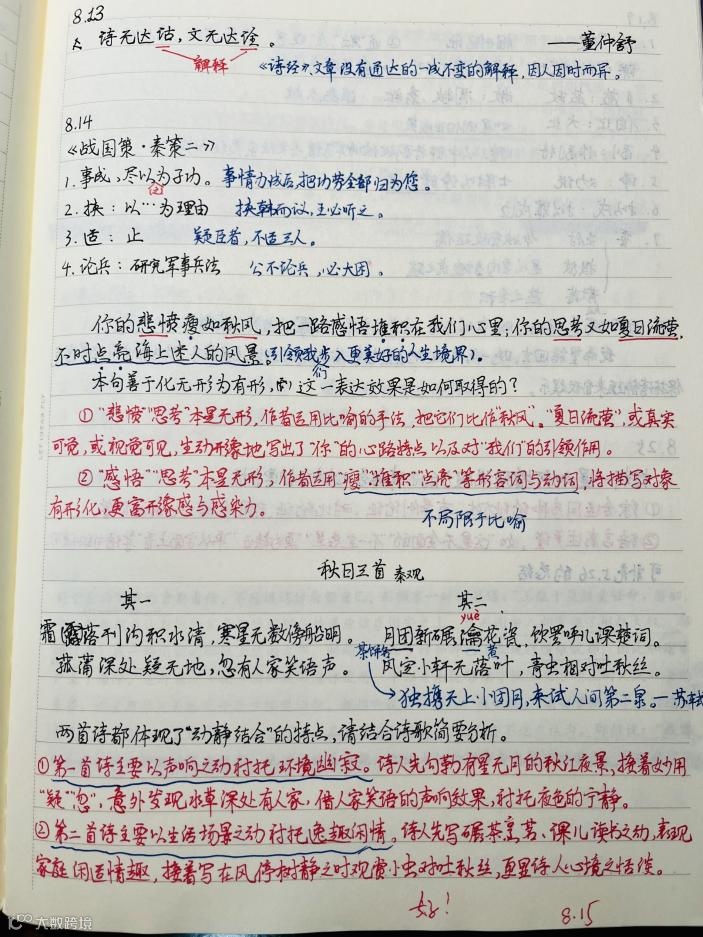 8.13
诗无达诂，文无达诠。 ——董仲舒
解释
《诗经》文章没有通达的一成不变的解释，因人因时而异。
8.14
《战国策·秦策二》
1.事成，尽以为子功。 事情办成后，把功劳全部归为您。
2.挟：以…为理由 挟韩而议，王必听之。
3.适：止 疑臣者，不适三人。
4.论兵：研究军事兵法 公不论兵，必大困。
你的悲愤瘦如秋风，把一路感悟堆积在我们心里；你的思考又如夏日流萤，
不时点亮海上迷人的风景。（引领我们步入更美好的人生境界）。
本句善于化无形为有形，这一表达效果是如何取得的？
①“悲愤”“思考”本是无形，作者运用比喻的手法，把它们比作“秋风”、“夏日流萤”，或真实
可觉，或视觉可见，生动形象地写出了“你”的心路特点以及对“我们”的引领作用。
②“感悟”“思考”本是无形，作者运用“瘦”“堆积”“点亮”等形容词与动词，将描写对象
有形化，更富形象感与感染力。
不局限于比喻
秋日三首 秦观
其一 其二
yuè
霜落邗沟积水清，寒星无数傍船明。 月团新碾瀹花瓷，饮罢呼儿课楚词。
茶饼 煮
菰蒲深处疑无地，忽有人家笑语声。 风定小轩无落叶，青虫相对吐秋丝。
独携天上小团月，来试人间第二泉。—苏轼
两首诗都体现了“动静结合”的特点，请结合诗歌简要分析。
①第一首诗主要以声响之动衬托环境幽寂。诗人先勾勒有星无月的秋江夜景，接着妙用
“疑”“忽”，意外发现水草深处有人家，借人家笑语的声响效果，衬托夜色的宁静。
②第二首诗主要以生活场景之动衬托逸趣闲情。诗人先写碾茶烹茗、课儿读书之动，表现
家庭闲适情趣，接着写在风停树静之时观赏小虫对吐秋丝，更显诗人心境之恬淡。
好！ 8.15
大数跨境